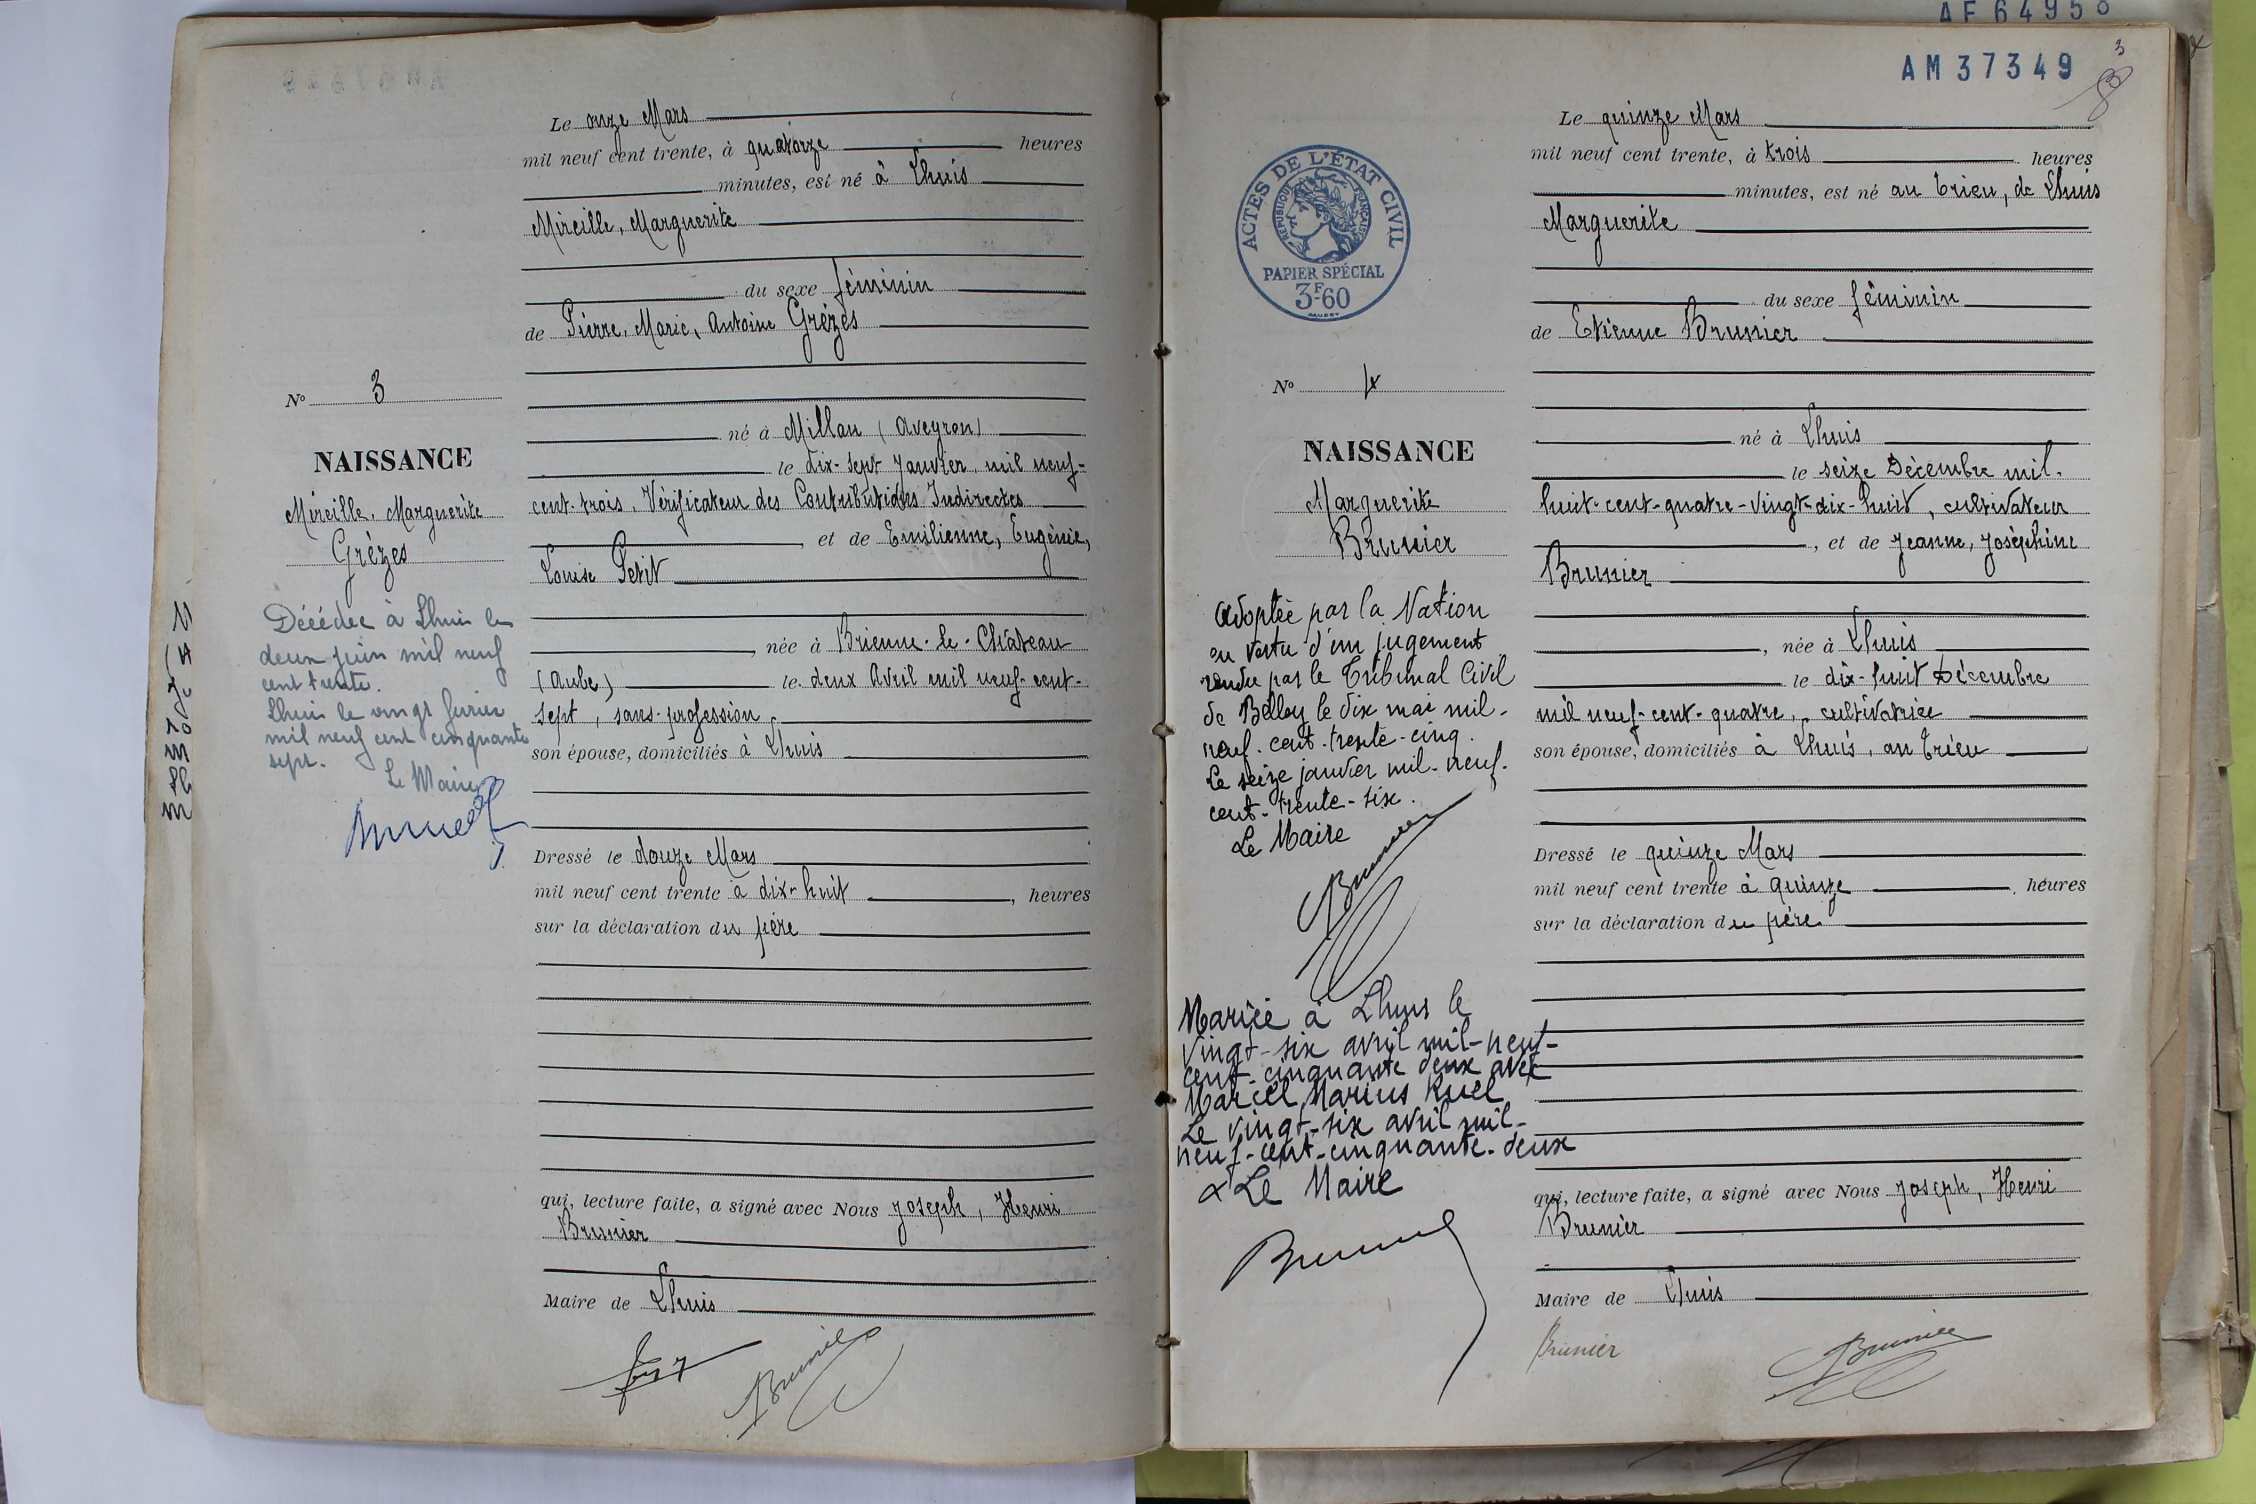 Le onze Mars
mil neuf cent trente, à quatorze heures
minutes, est né à Lhuis
Mireille, Marguerite
du sexe féminin
de Pierre, Marie, Antoine Grèzes
né à Millau (Aveyron)
le dix-sept Janvier mil neuf-
cent-trois, Vérificateur des Contributions Indirectes
, et de Emilienne, Eugénie,
Louise Petit
, née à Brienne-le-Château
(Aube) le deux Avril mil neuf-cent-
sept, sans-profession
son épouse, domiciliés à Lhuis
Dressé le douze Mars
mil neuf cent trente à dix-huit , heures
sur la déclaration du père
qui, lecture faite, a signé avec Nous Joseph, Henri
Brunier
Maire de Lhuis
Brunier
No 3
NAISSANCE
Mireille, Marguerite
Grèzes
Décédée à Lhuis le
deux juin mil neuf
cent trente.
Lhuis le vingt février
mil neuf cent cinquante
sept.
Le Maire
AF64958
AM37349
3
Le quinze Mars
mil neuf cent trente, à trois heures
minutes, est né au Crieu, de Lhuis
Marguerite
du sexe féminin
de Etienne Brunier
né à Lhuis
le seize Décembre mil-
huit-cent-quatre-vingt-dix-huit, cultivateur
, et de Jeanne, Joséphine
Brunier
, née à Lhuis
le dix-huit Décembre
mil neuf-cent-quatre, cultivatrice
son épouse, domiciliés à Lhuis, au Crieu
Dressé le quinze Mars
mil neuf cent trente à quinze , heures
sur la déclaration du père
qui, lecture faite, a signé avec Nous Joseph, Henri
Brunier
Maire de Lhuis
Brunier
Brunier
ACTES DE L'ÉTAT CIVIL
RÉPUBLIQUE FRANÇAISE
PAPIER SPÉCIAL
3F60
No 4
NAISSANCE
Marguerite
Brunier
Adoptée par la Nation
en vertu d'un jugement
rendu par le Tribunal Civil
de Belley le dix mai mil-
neuf-cent-trente-cinq.
Le seize janvier mil-neuf-
cent-trente-six.
Le Maire
Brunier
Mariée à Lhuis le
vingt-six avril mil-neuf-
cent-cinquante deux avec
Marcel Marius Ruel
Le vingt-six avril mil-
neuf-cent-cinquante-deux
Le Maire